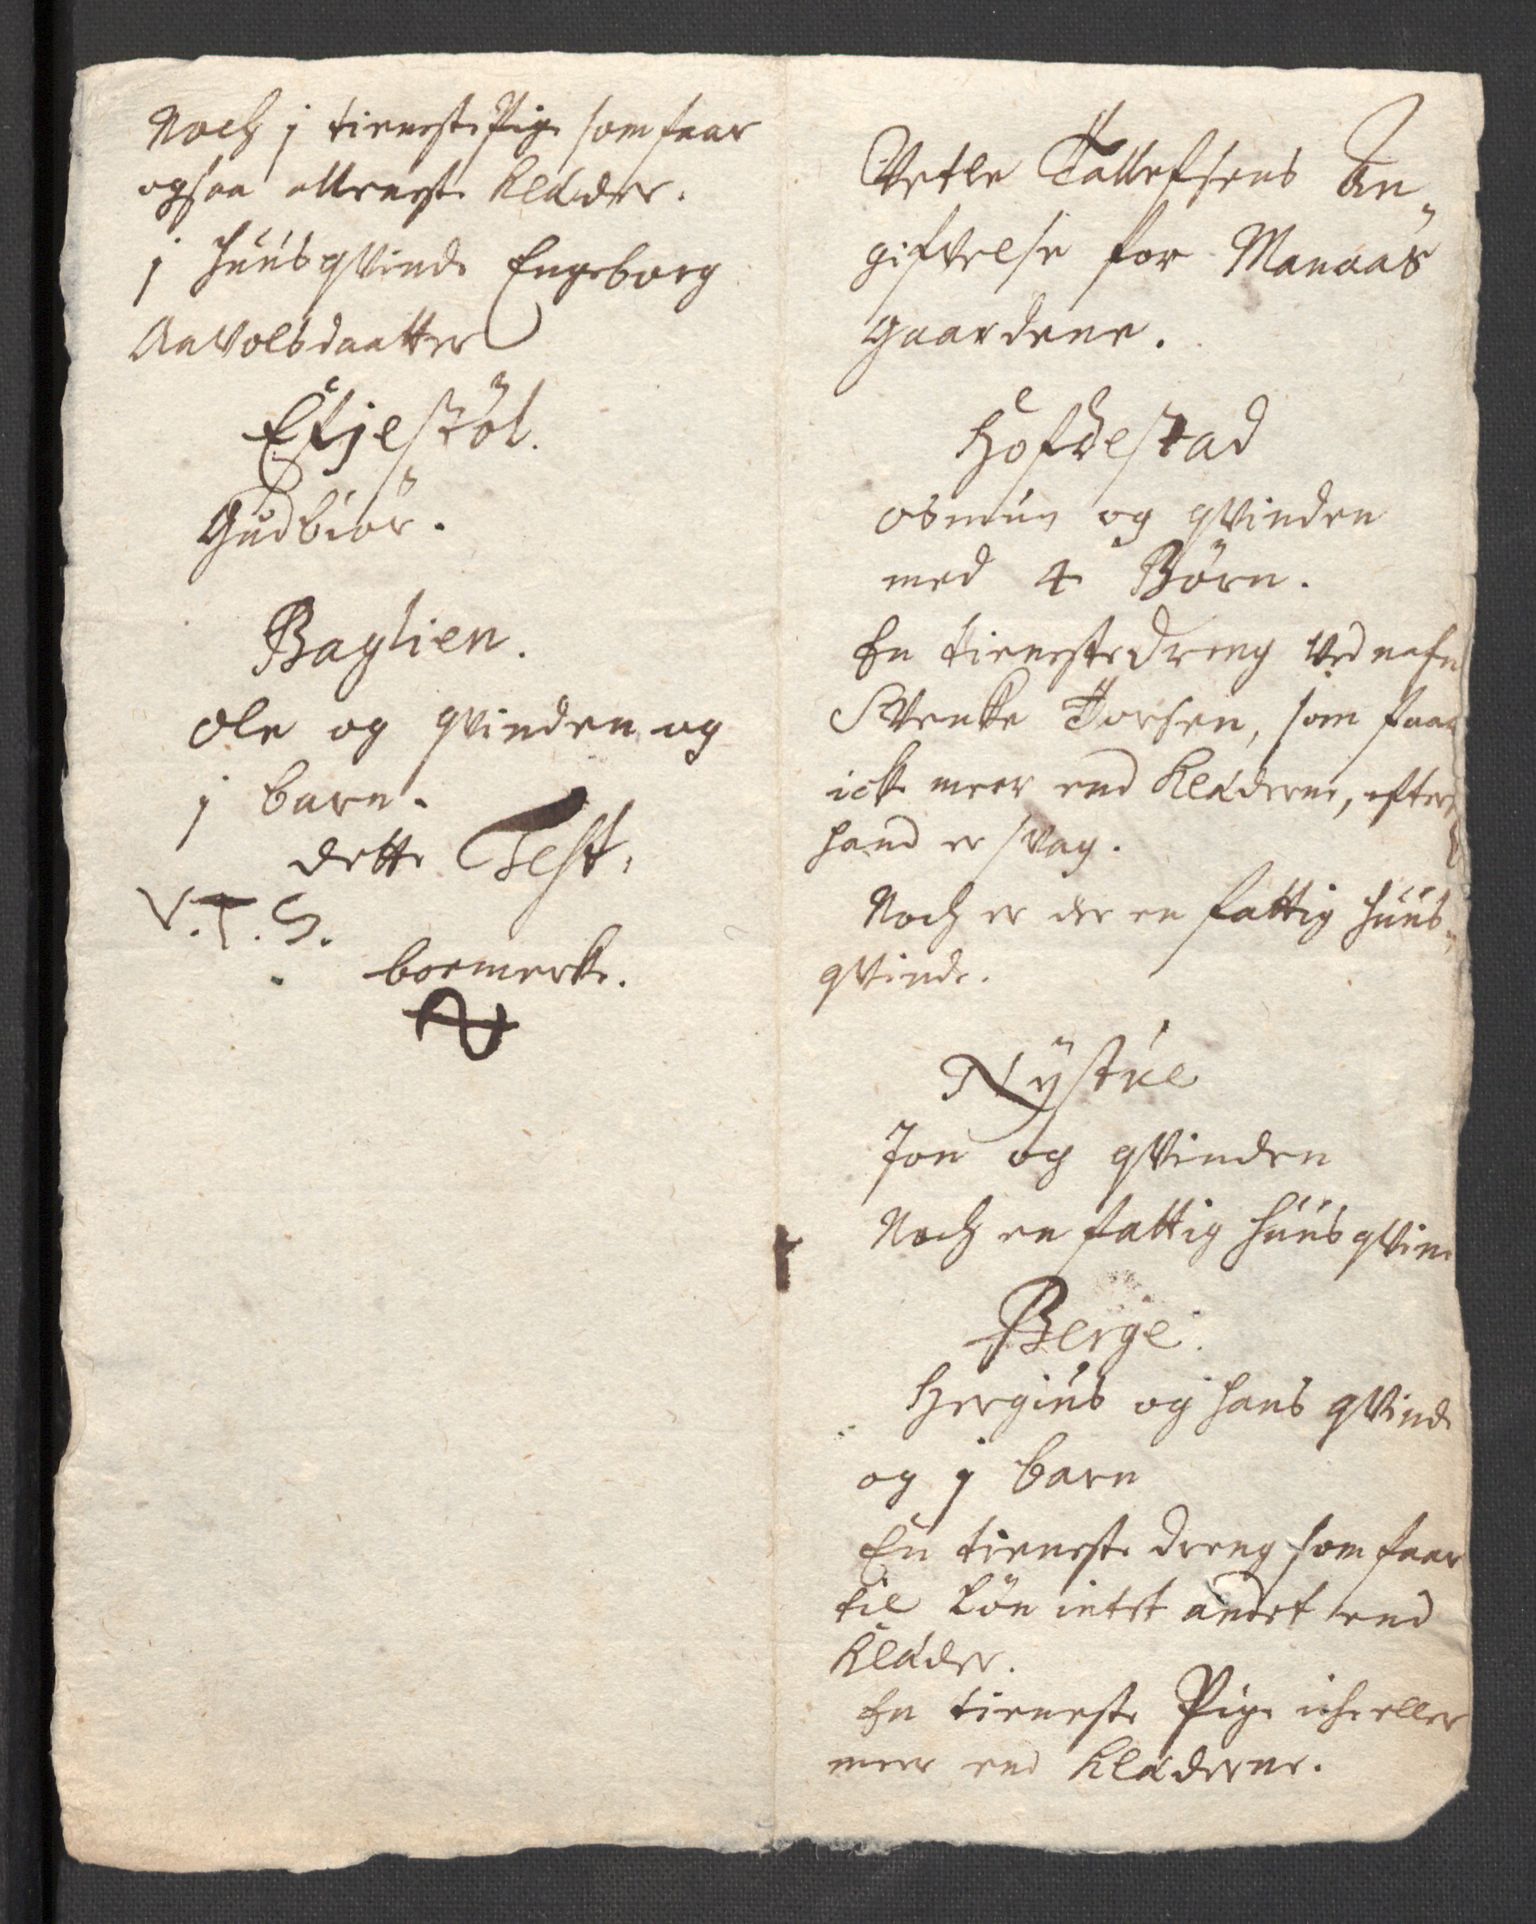 Noch j tieneste Pige som faar
ogsaa alleneste Klæder.
j huusqvinde Engeborg
Aavolsdaatter
Efjestöl.
Gudbiör.
Baglien.
Ole og qvinden og
j barn.
dette Test,
V.T.S.
boemerke.
Vetle Tallefsens An„
gifvelse for Manaas
gaardene.
Hofdestad
Osmun og qvinden
med 4 Börn.
En tieneste dreng ved nafn
Svenke Torsen, som faar
icke meer end Klæderne, efter
hand er svag.
Noch er der en fattig huus„
qvinde.
Nystúe
Jon og qvinden
Noch en fattig huusqvin
Berge.
Hergius og hans qvinde
og j barn
En tieneste dreng som faar
til Lön intet andet end
Klæder.
En tieneste Pige iche eller
meer end Klæderne.